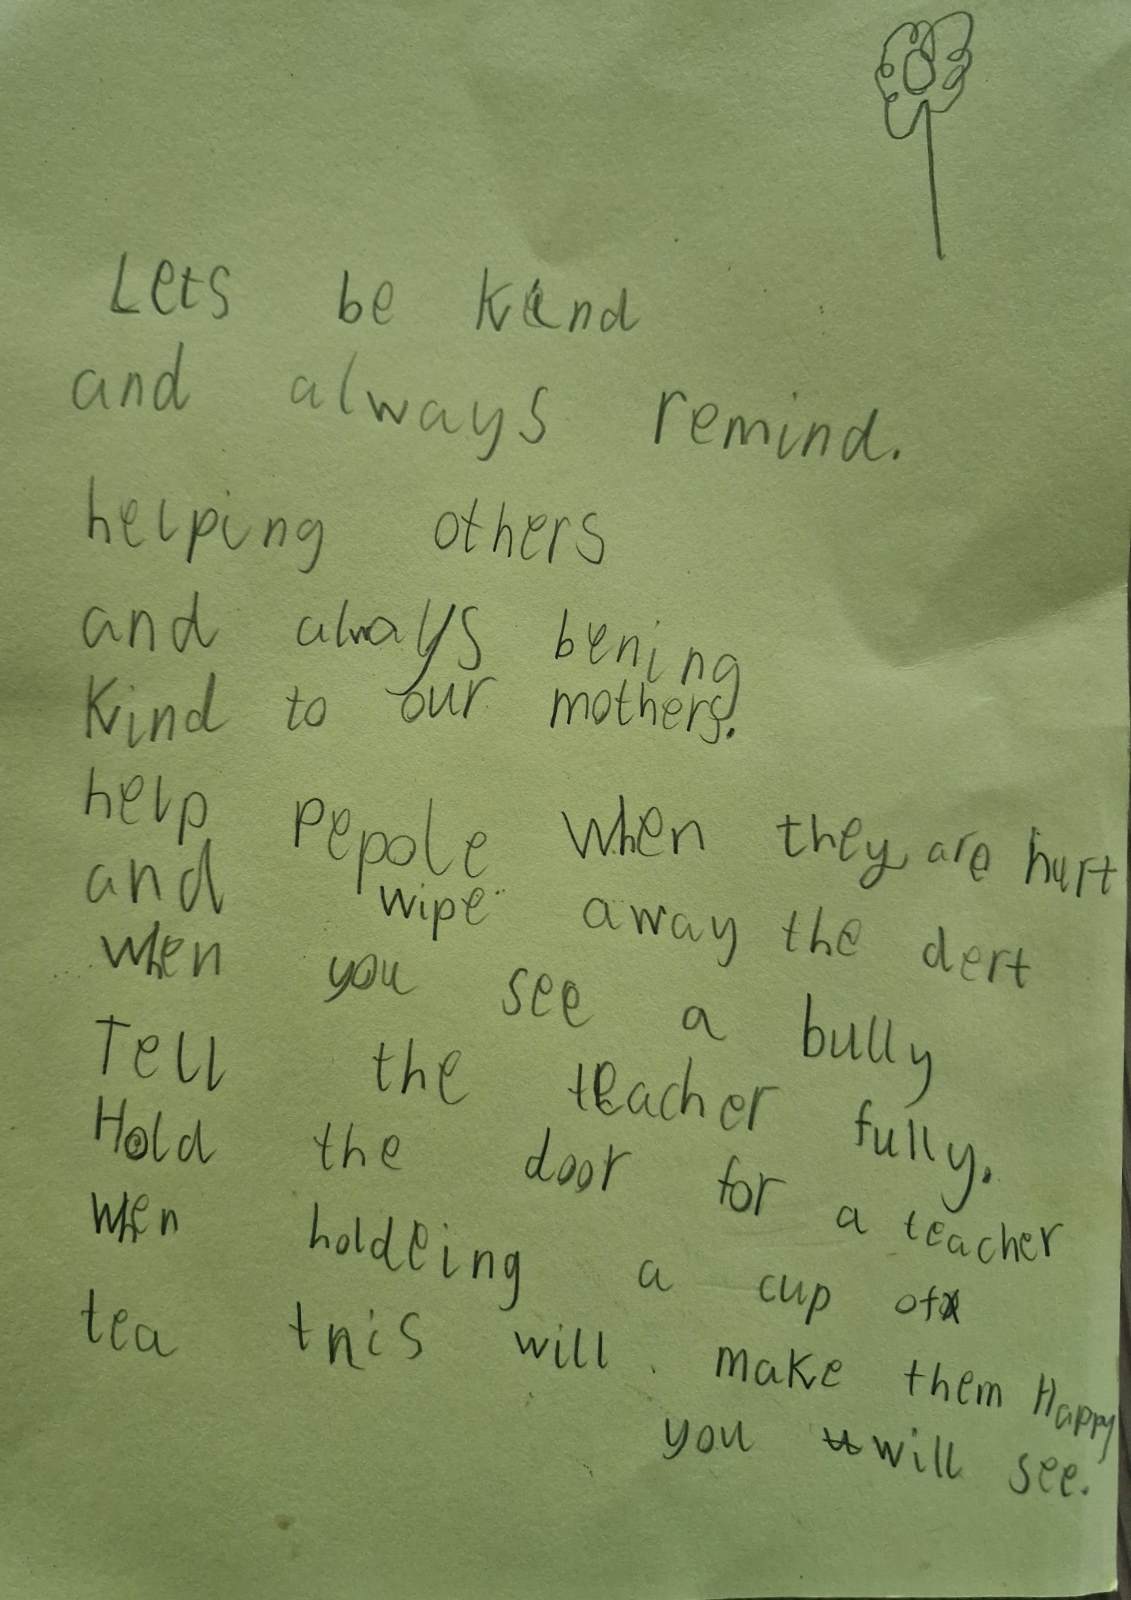 Lets be kind
and always remind.
helping others
and always bening
Kind to our mothers.
help pepole when they are hurt
and wipe away the dert
when you see a bully
Tell the teacher fully.
Hold the door for a teacher
when holdeing a cup of
tea tnis will make them Happy
you will see.